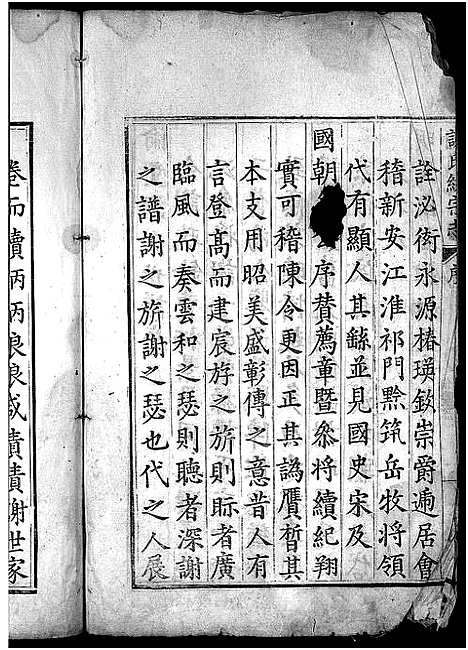 謝氏統宗志 序
詮泌衒永源椿瑛欽崇爵逋居會
稽新安江淮祁門黟筑岳牧將領
代有顯人其繇並見國史宋及
國朝 序賛薦章暨叅將續紀翔
實可稽陳令更因正其譌贋晳其
本支用昭美盛彰傳之意昔人有
言登髙而建宸斿之旂則眎者廣
臨風而奏雲和之瑟則聽者深謝
之譜謝之旂謝之瑟也代之人展
卷而讀炳炳良良咸責責謝世家